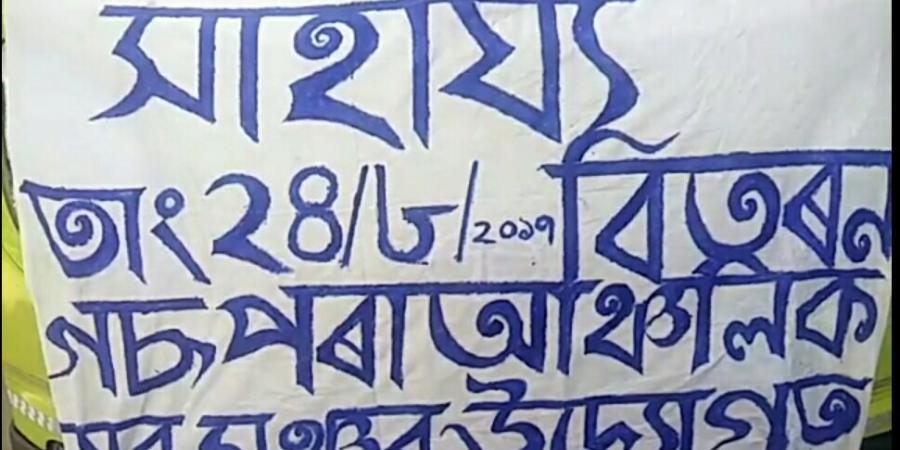 সাহায্য
তাং ২৪/৮/২০১৭ বিতৰন
গচপৰা আঞ্চলিক
উদ্যেগত